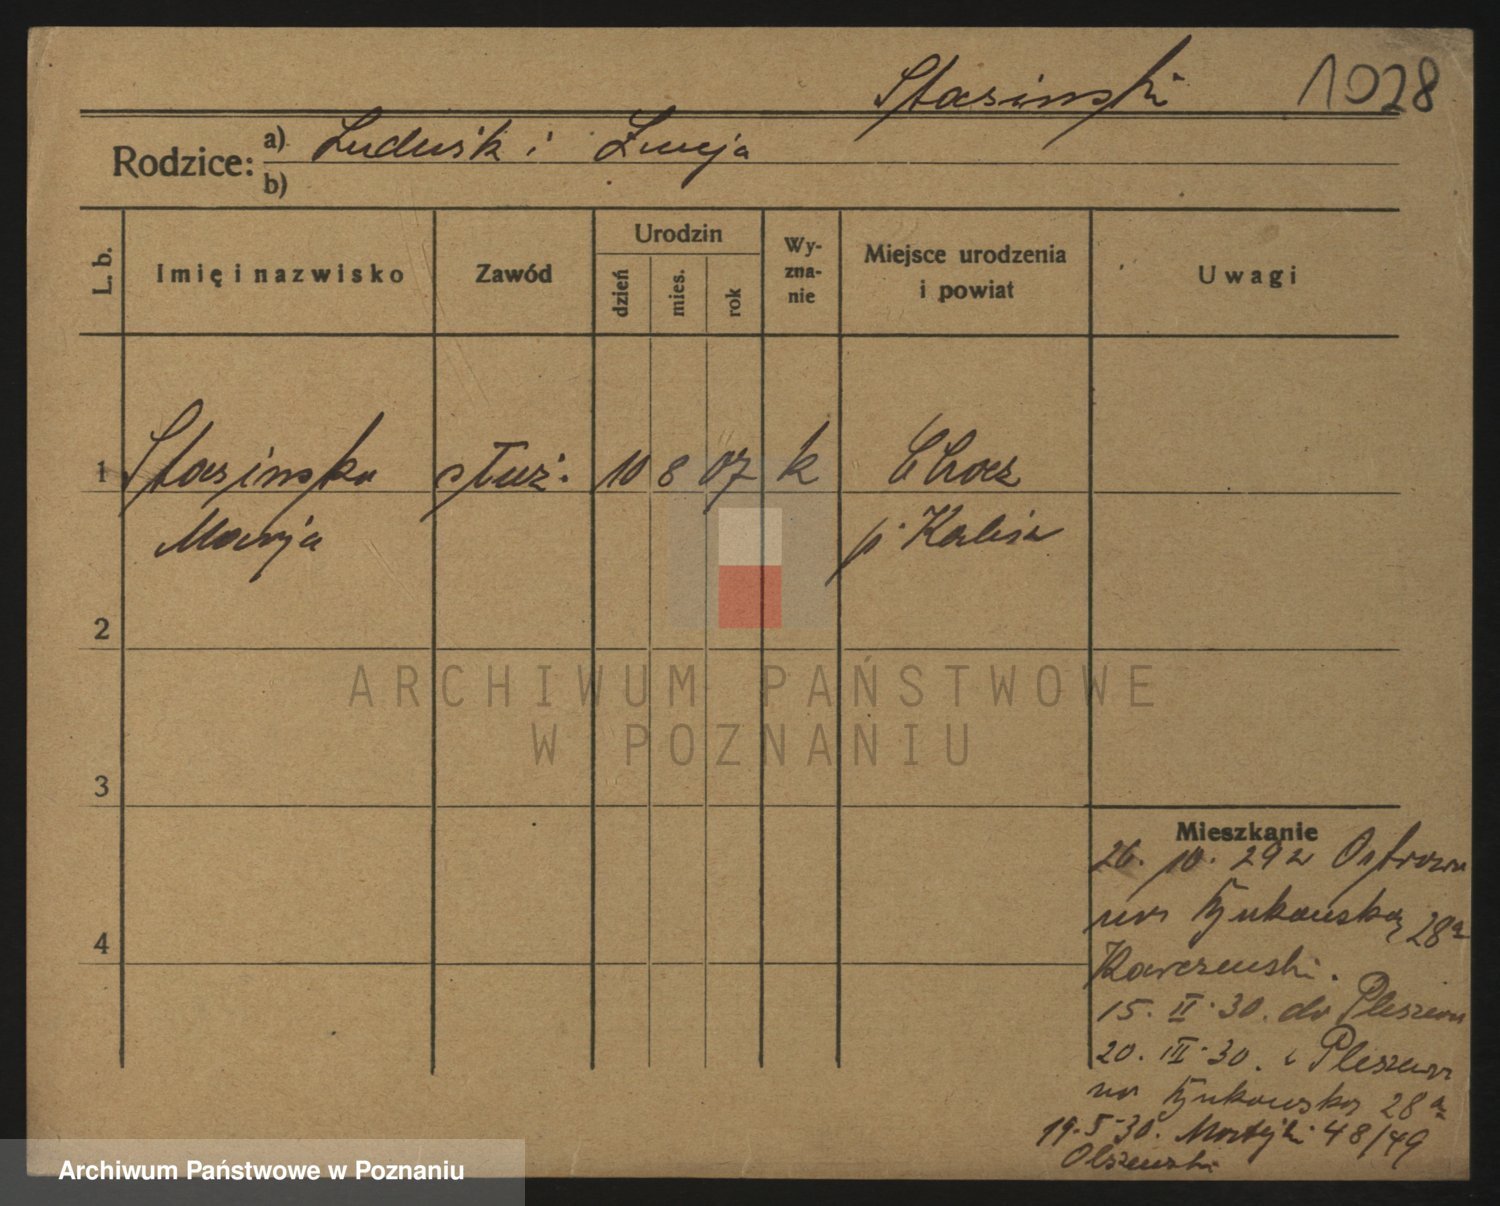 Stasinski 1028
Rodzice: a) Ludwik i
b)
L. b. Imię i nazwisko Zawód Urodzin dzień mies. rok Wyznanie Miejsce urodzenia i powiat Uwagi
1 Stasinska służ. 10 8 07 k Chocz
Marja p. Kalisz
2
3
4
Mieszkanie
26. 10. 29 z Ostrowa
na 28a
Karczewski.
15. II. 30. do Pleszewa
20. III. 30. z Pleszewa
na 28a
19. 5. 30. 48/49
Olszewski
ARCHIWUM PAŃSTWOWE
W POZNANIU
Archiwum Państwowe w Poznaniu